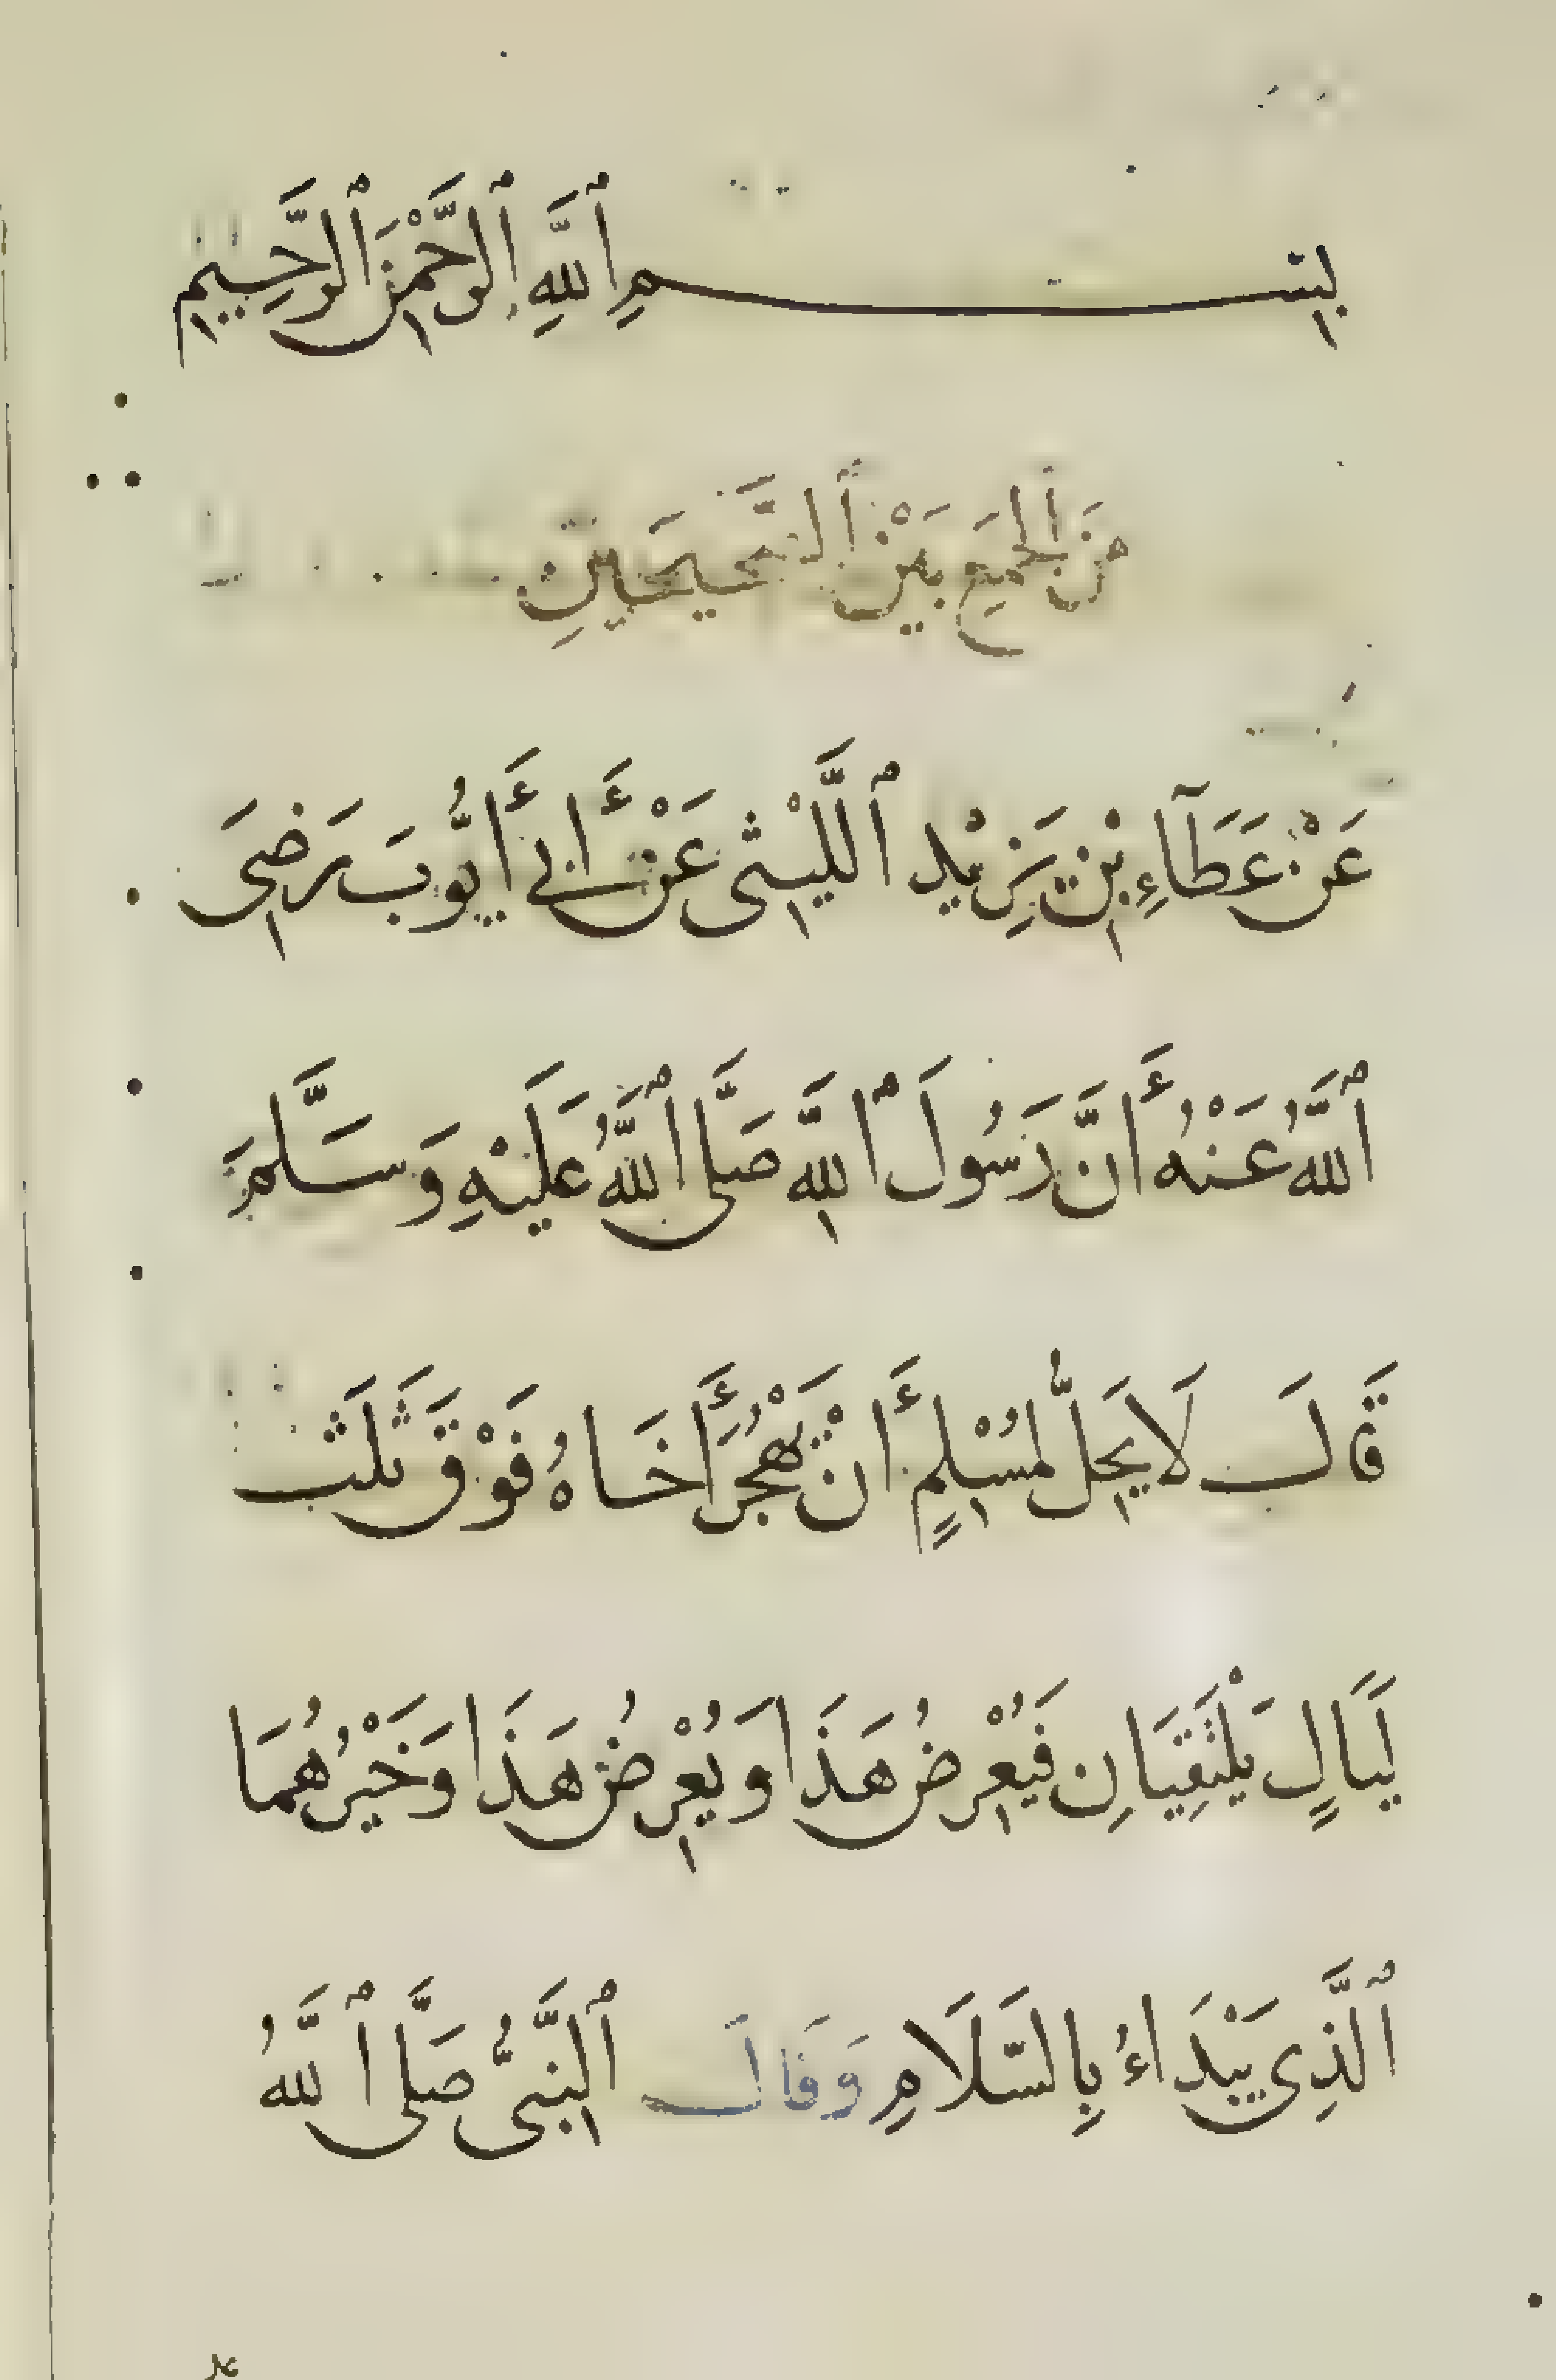 بِسْمِ ٱللَّهِ ٱلرَّحْمٰنِ ٱلرَّحِيمِ
مِنَ ٱلْجَمْعِ بَيْنَ ٱلصَّحِيحَيْنِ
عَنْ عَطَآءِ بْنِ يَزِيْدَ ٱللَّيْثِى عَنْ أَبِي أَيُّوبَ رَضِىَ
ٱللَّهُ عَنْهُ أَنَّ رَسُولَ ٱللَّهِ صَلَّى ٱللَّهُ عَلَيْهِ وَسَلَّمَ
قَالَ لَا يَحِلُّ لِمُسْلِمٍ أَنْ يَهْجُرَ أَخَاهُ فَوْقَ ثَلَثِ
لَيَالٍ يَلْتَقِيَانِ فَيُعْرِضُ هَذَا وَيُعْرِضُ هَذَا وَخَيْرُهُمَا
ٱلَّذِى يَبْدَاءُ بِالسَّلَامِ وَقَالَ ٱلنَّبِىُّ صَلَّى ٱللَّهُ